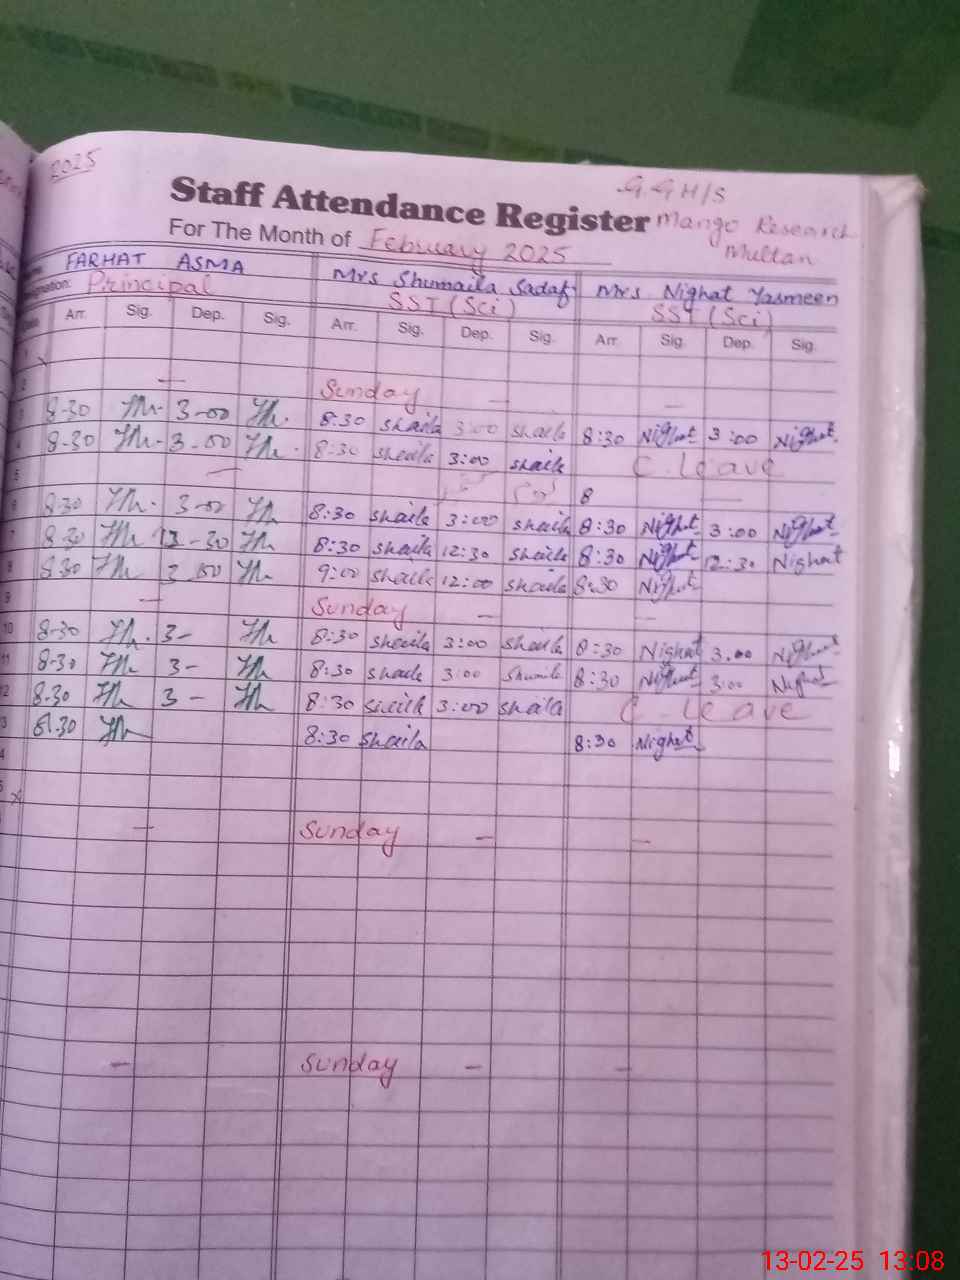 2025
G G H/S
Staff Attendance Register Mango Research
For The Month of February 2025 Multan
FARHAT ASMA Mrs Shumaila Sadaf Mrs Nighat Yasmeen
Principal SST (Sci) SST (Sci)
Arr. Sig. Dep. Sig. Arr. Sig. Dep. Sig. Arr. Sig. Dep. Sig.
1
2 — Sunday — —
3 8-30 3-00 8:30 shaila 3:00 shaila 8:30 Nighat 3:00 Nighat
4 8-30 3-00 8:30 shaila 3:00 shaila C. leave
5 — 8 —
6 8-30 3-00 8:30 shaila 3:00 shaila 8:30 Nighat 3:00 Nighat
7 8-30 -30 8:30 shaila 12:30 shaila 8:30 Nighat 12:30 Nighat
8 8-30 3-00 9:00 shaila 12:00 shaila 8:30 Nighat
9 — Sunday — —
10 8-30 3- 8:30 shaila 3:00 shaila 8:30 Nighat 3:00 Nighat
11 8-30 3- 8:30 shaila 3:00 8:30 Nighat 3:00 Nighat
12 8-30 3- 8:30 shaila 3:00 shaila C. leave
13 8-30 8:30 shaila 8:30 Nighat
— Sunday — —
— Sunday — —
13-02-25 13:08